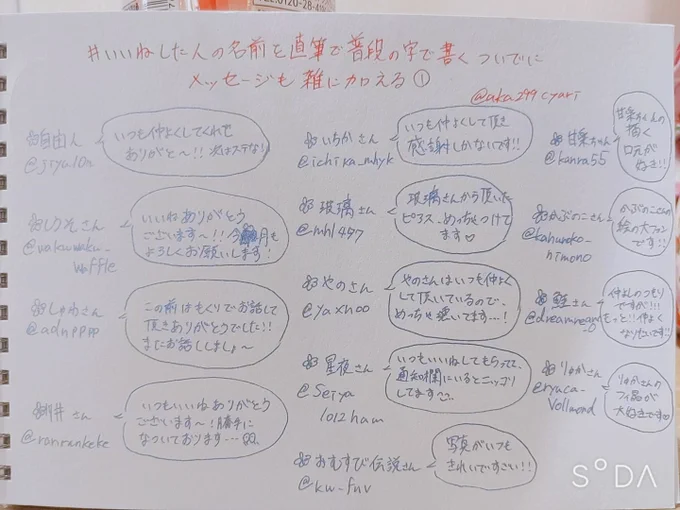 #いいねした人の名前を直筆で普段の字で書く ついでに
メッセージも 雑に加える①
@aka299cyari
自由ん
@jiyu10n
いつも仲よくしてくれて
ありがと〜!!
いちかさん
@ichika_mhyk
いつも仲よくして頂き
感謝しかないです!!
甘楽ちゃん
@kanra55
甘楽くんの
描く
口元が
好き!!
しりそさん
@wakuwaku_
waffle
いいねありがとう
ございます〜!! 今月も
よろしくお願いします!
玻璃さん
@mhl497
玻璃さんから頂いた
ピアス、めっちゃつけて
ます♡
かぶのこさん
@kabunoko_
himono
かぶのこさんの
絵の大ファン
です!!
しゅわさん
@adnpppp
この前はもくりでお話して
頂きありがとうでした!!
またお話ししましょ〜
やのさん
@yaxnoo
やのさんはいつも仲よく
して頂いているので、
めっちゃ懐いてます…!
鮭さん
仲よしのつもり
ですが!!!
もっと!!仲よく
なりたいです!!
星夜さん
@Seiya_
1012ham
いつもいいねしてもらってて、
通知欄にいるとニッコリ
してます
りゅかさん
@ryuca_
Vollmond
りゅかさんの
作品が
大好きです♡
さん
@ranrankeke
いつもいいねありがとう
ございます〜!勝手に
なついております…
おむすび伝説さん
@kw_fnv
写真がいつも
きれいですごい!!
SODA